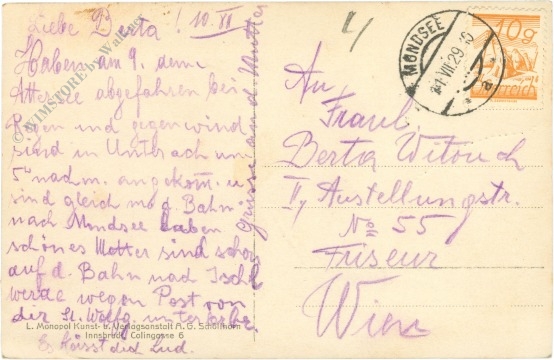 Liebe Berta! 10. VII
Haben am 9. dem
Attersee abgefahren bei
Regen und gegenwind
sind in Untrach um
5h nachm. angekom. u
sind gleich m. d. Bahn
nach Mondsee haben
schönes Wetter sind schon
auf d. Bahn nach Ischl
werde wegen Post von
dir St. Wolfg. unterbr.
Es küsst dich Lud.
Grüsse and Mutter
L. Monopol Kunst- u. Verlagsanstalt A. G. Schöllhorn
Innsbruck, Colingasse 6
© WIMSTORE by Walter
4
MONDSEE
VII.29.10
10g
Österreich
An
Fraul
Berta Witouch
II, Austellungstr.
No 55
Friseur
Wien